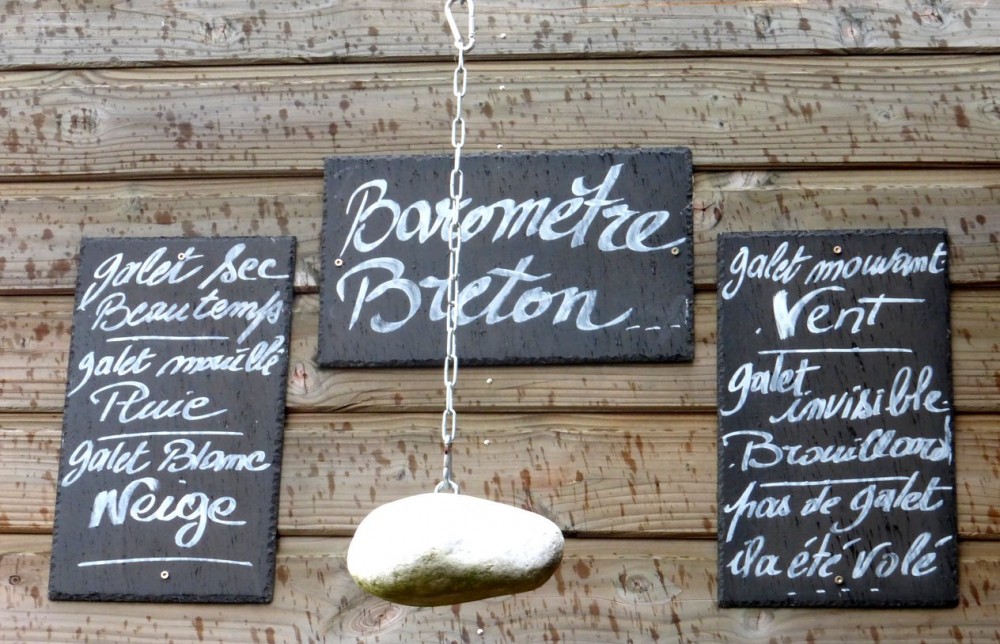 Baromètre
Breton....
galet sec
Beau temps
galet mouillé
Pluie
galet Blanc
Neige
galet mouvant
Vent
galet
invisible
Brouillard
pas de galet
il a été volé